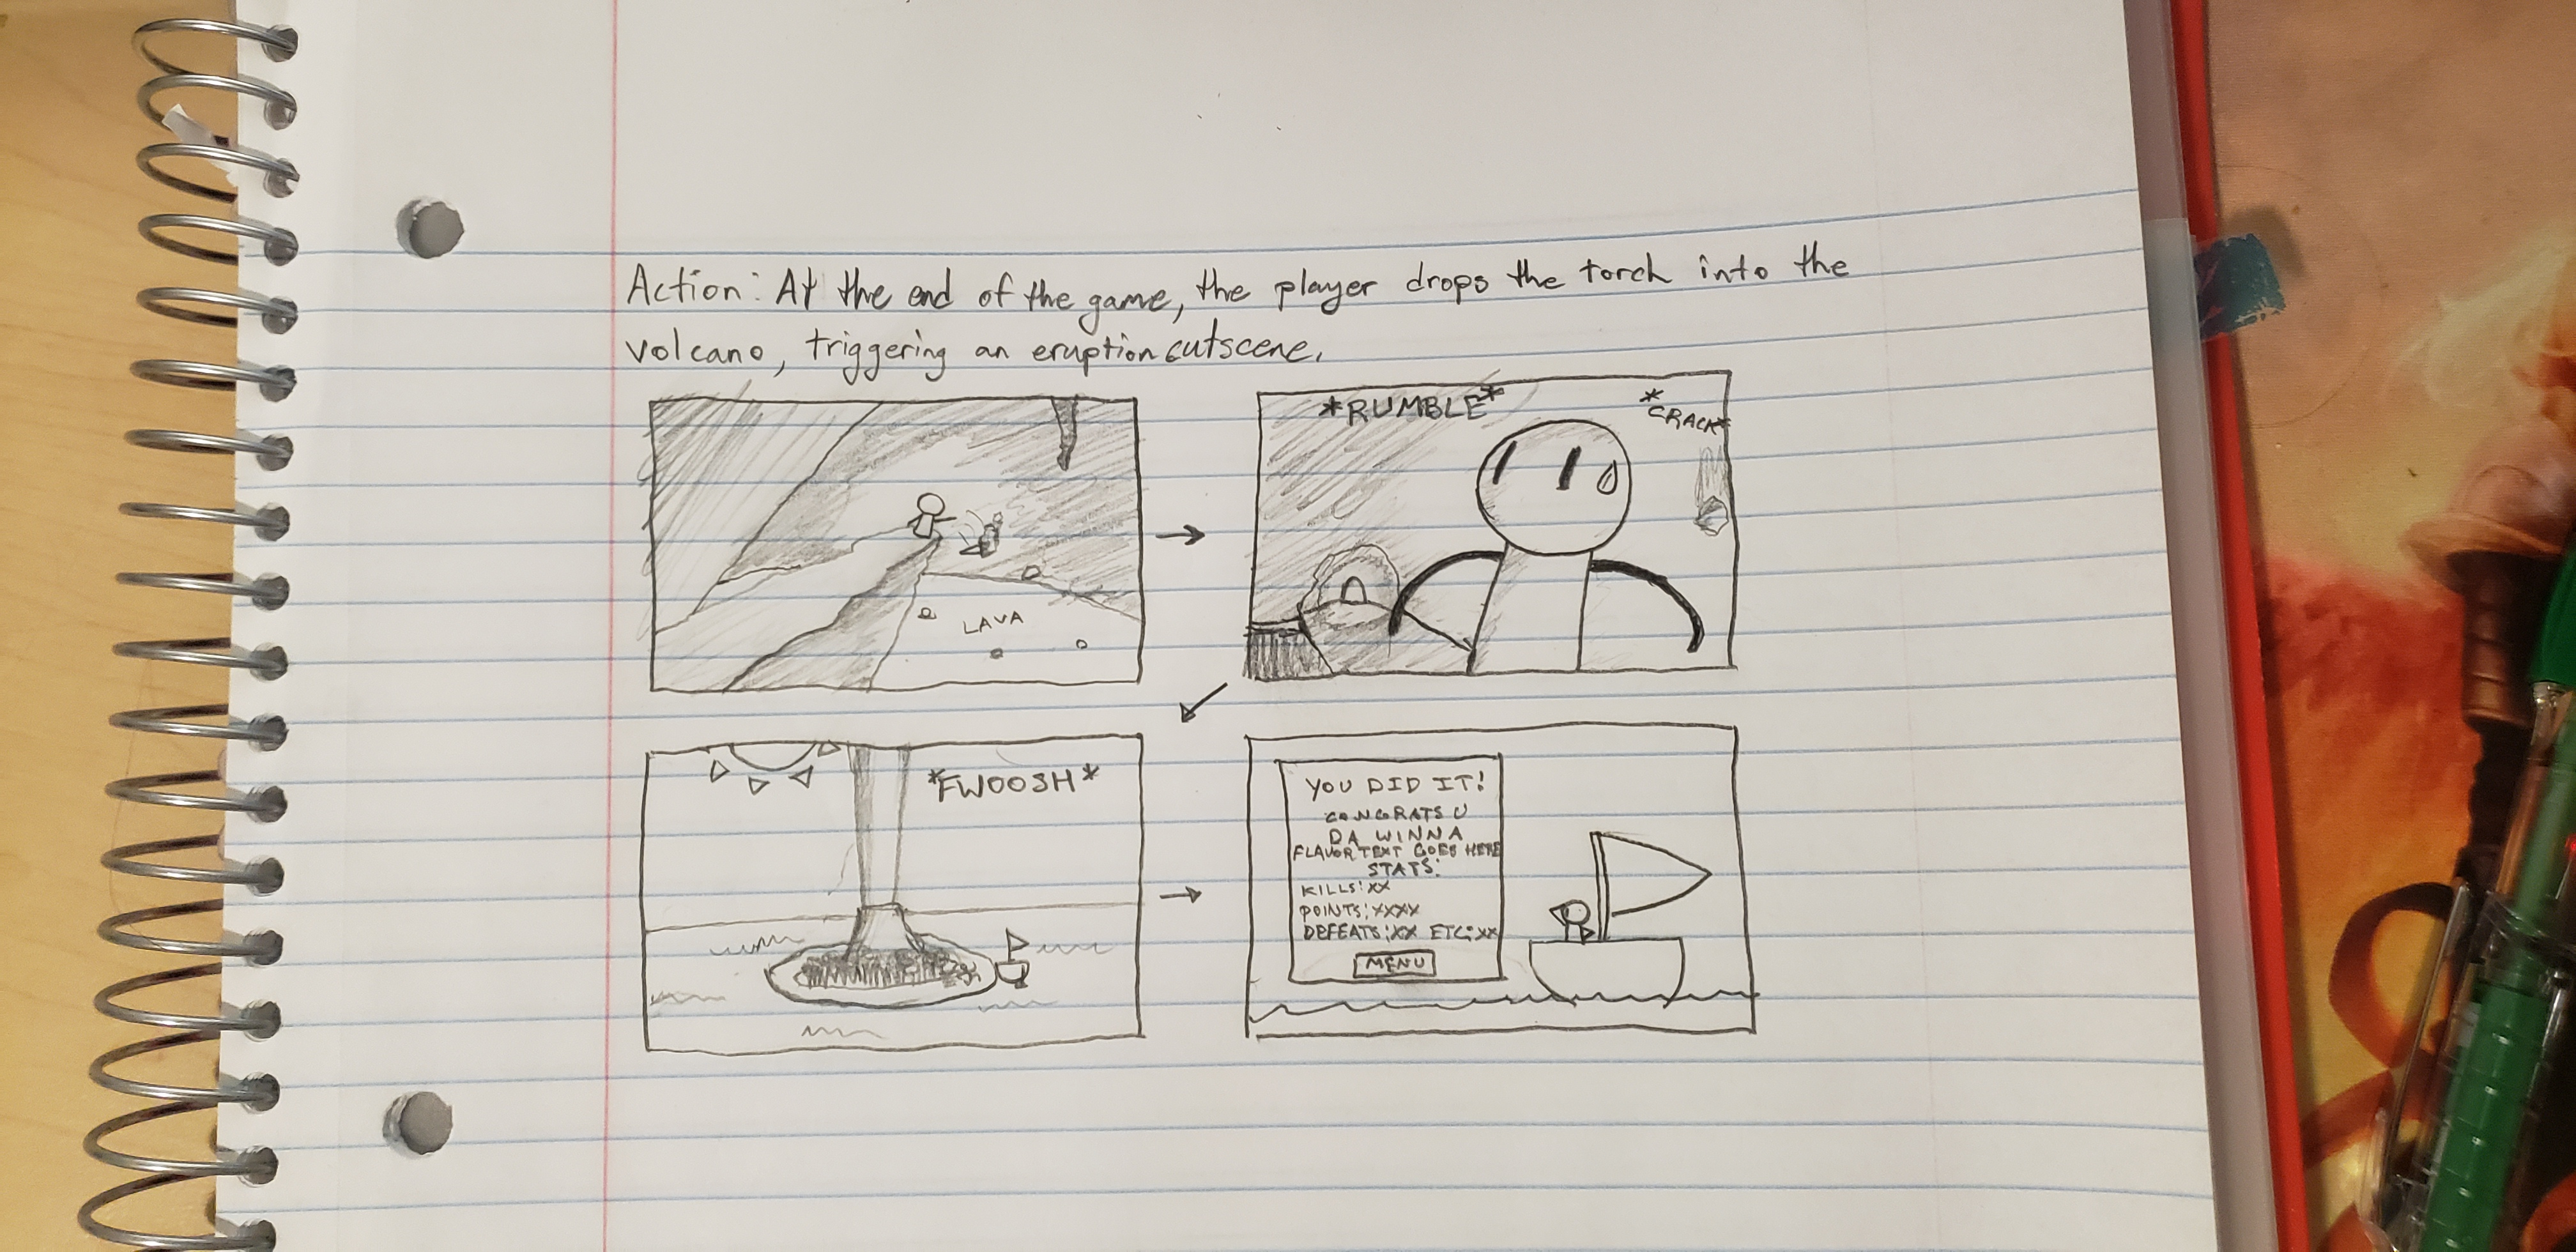 Action: At the end of the game, the player drops the torch into the
volcano, triggering an eruption cutscene.
*RUMBLE*
*CRACK*
LAVA
*FWOOSH*
YOU DID IT!
CONGRATS U
DA WINNA
FLAVOR TEXT GOES HERE
STATS:
KILLS:XX
POINTS:XXXX
DEFEATS:XX ETC:XX
MENU